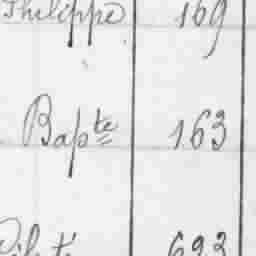 Philippe 169
Bapte 163
693